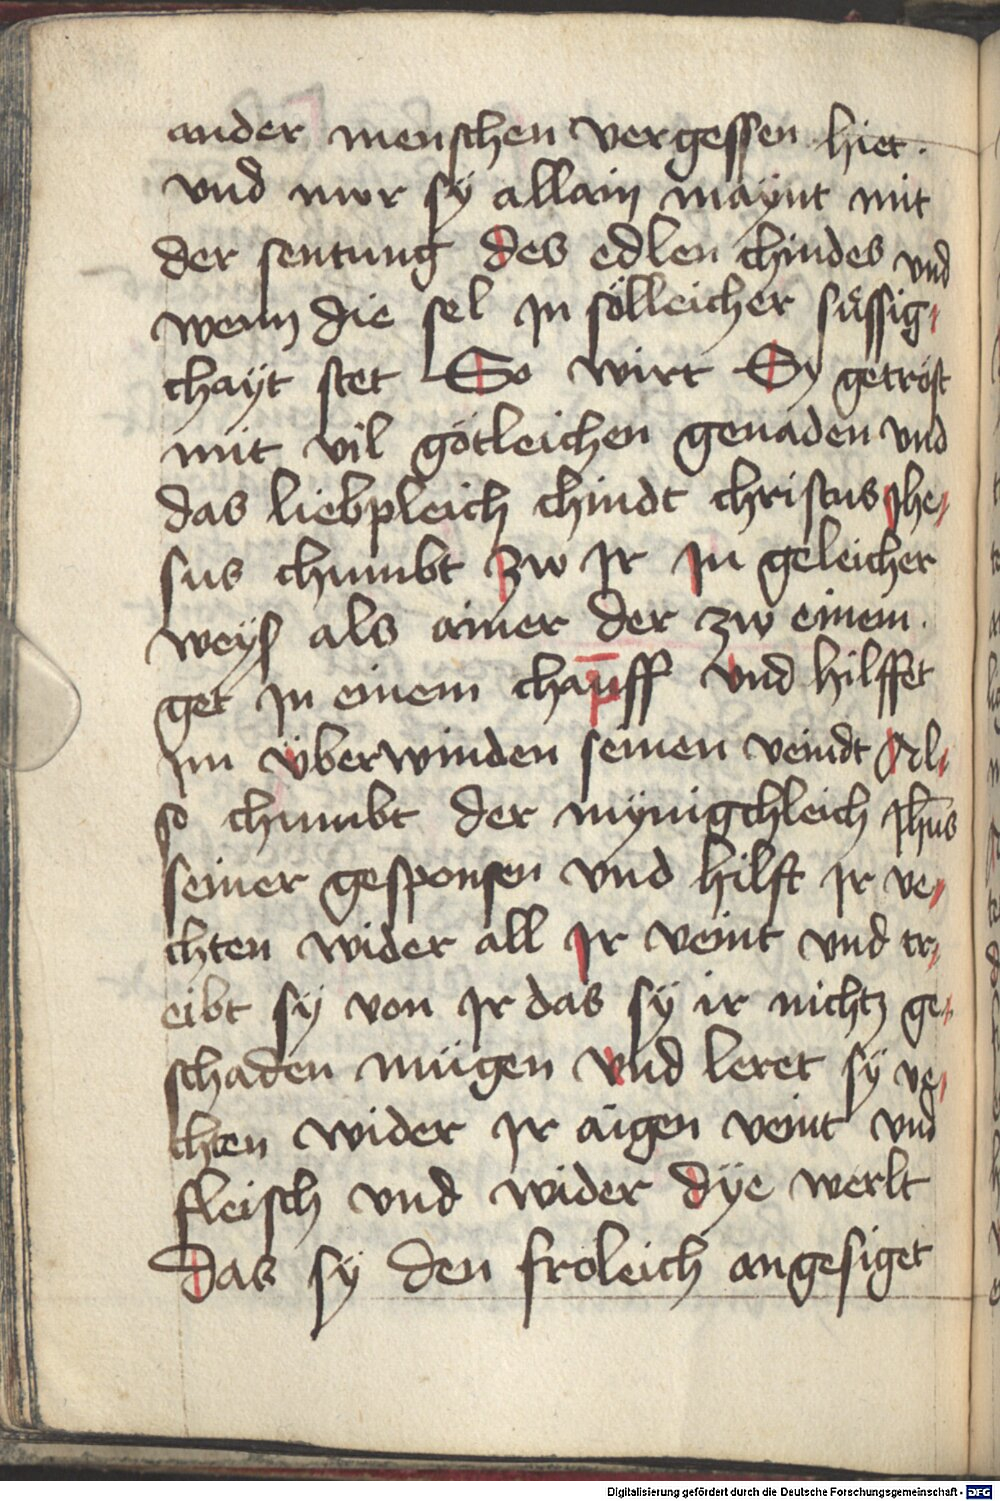 ander menschen vergessen hiet.
vnd nwr sÿ allain maÿnt mit
der sentung des edlen chindes vnd
wenn die sel In sölleicher süssig
chaÿt stet So wirt Sy getröst
mit vil götleichen genaden vnd
das liebpleich chindt christus Ihe
sus chumbt zw Ir In geleicher
weÿs als ainer der zw einem
get In einem champff vnd hilffet
Im überwinden seinen veindt Al
so chumbt der mÿnigchleich Jhūs
seiner gesponsen vnd hilft Ir ve
chten wider all Ir veint vnd tr
eibt sÿ von Ir das sÿ ir nichtz ge
schaden mügen vnd leret sÿ ve
chten wider Ir aigen veint vnd
fleisch vnd wider dÿe werlt
Das sÿ den froleich angesiget
Digitalisierung gefördert durch die Deutsche Forschungsgemeinschaft - DFG